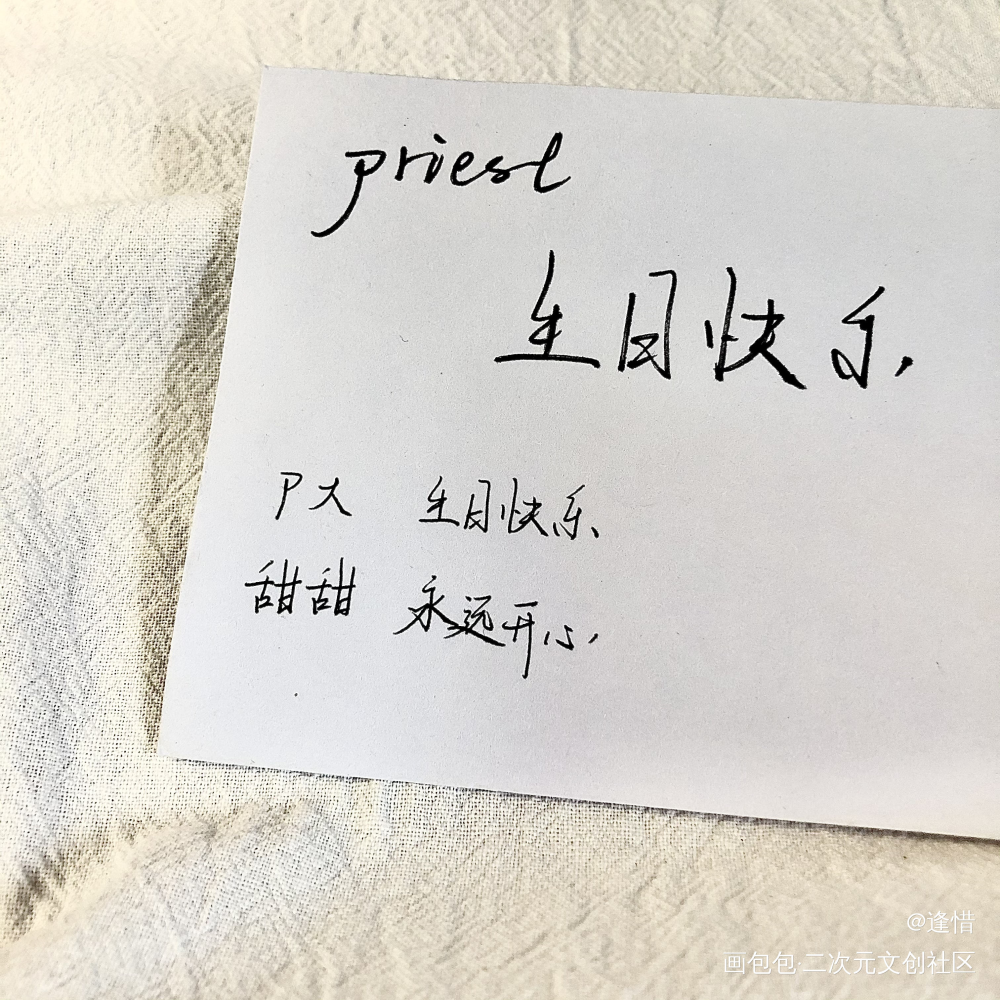 priest
生日快乐
P大 生日快乐
甜甜 永远开心
@逢惜
画包包·二次元文创社区